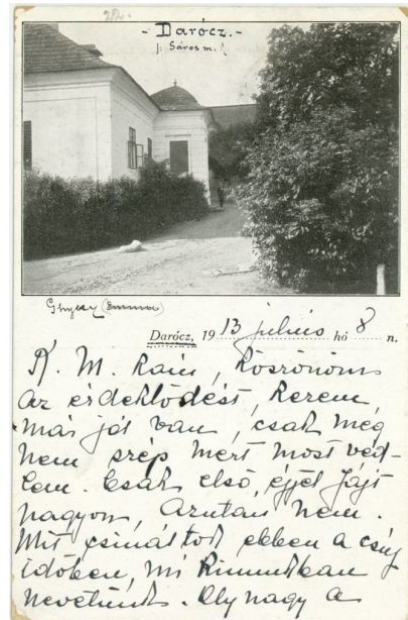 - Darócz. -
Sáros m.
Ghyczy (Emma)
Darócz, 1913 julius hó 8 n.
K. M. Kain, Köszönöm
az érdeklődést, kerem,
már jól van, csak még
nem szép mert most ved-
lem. Csak első éjjel fájt
nagyon, azután nem.
Mit csináltok ebben a csúf
időben, mi Rimunkban
nevetünk. Oly nagy a